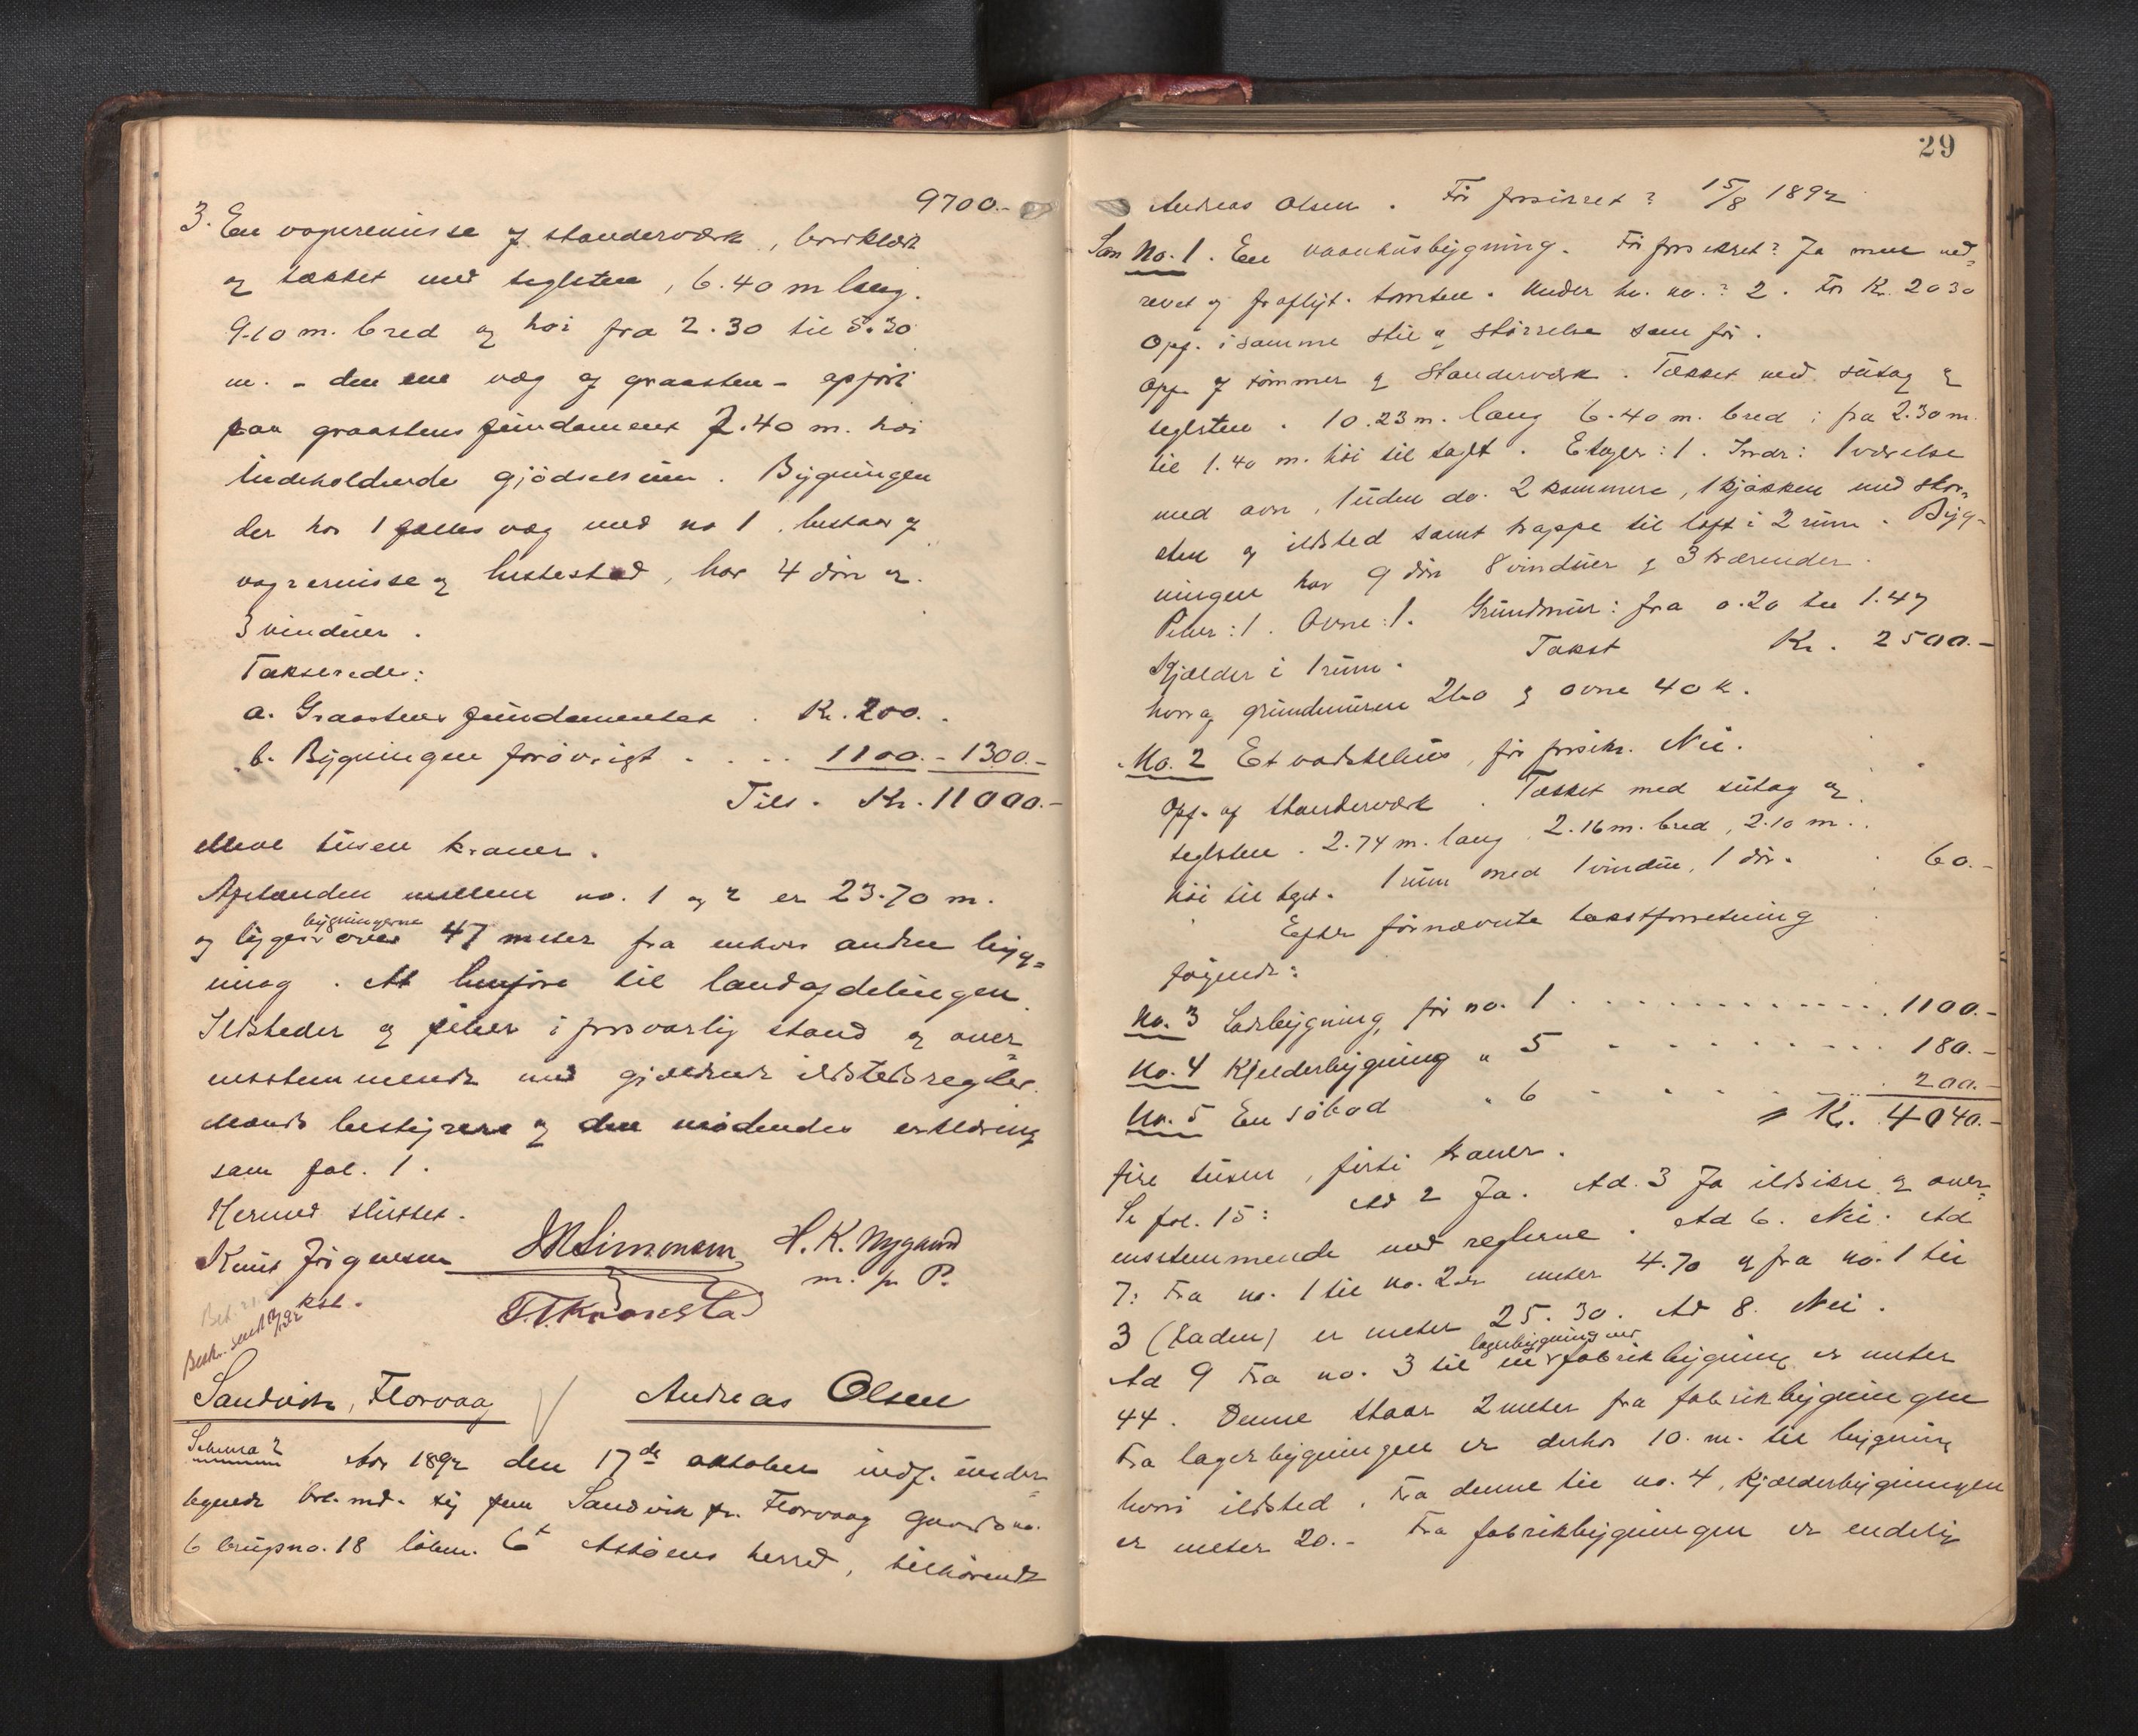 9700.-
3. En vognremisse af standerværk, bordklædt
og tækket med teglsten, 6.40 m lang.
9.10 m. bred og høi fra 2.30 til 5.30
m. - den ene væg af graasten - opført
paa graastens fundament 2.40 m. høi
indeholdende gjödselrum. Bygningen
der har 1 fælles væg med no 1, bestaar af
vognremisse og hestestald, har 4 dör og
3 vinduer.
Takseredes:
a. Graastens fundamentet . Kr. 200.-
b. Bygningen forövrigt . . . . 1100.- 1300.-
Tils. Kr. 11000.-
Elleve tusen kroner.
Afstanden mellem no. 1 og 2 er 23.70 m.
bygningerne
og ligger over 47 meter fra enhver anden byg=
ning. At henføre til landafdelingen.
Ildsteder og piber i forsvarlig stand og over=
ensstemmende med gjældende ildstedsregler.
Mands bestyrere og den mödendes erklæring
som fol. 1.
Hermed sluttet.
Knut Jörgensen
J M Simonsen
H. K. Nygaard
m. p. P.
kst.
T. T. Kronstad
Sandvik, Florvaag
Andreas Olsen
Schema 2
Aar 1892 den 17de oktober indf. under=
tegnede sig paa Sandvik fr. Florvaag gaards no.
6 brugsno. 18 Askøens herred, tilhørende
29
Andreas Olsen. För forsikret? 15/8 1892
Som No. 1. En vaanhusbygning. För forsikret? Ja men ned=
revet og fraflyt. tomten. Under hv. no.? 2. For Kr. 2030
Opf. i samme stil og större­lse som för.
Opf. af tömmer og standerværk. Tækket med sutag og
teglsten. 10.23 m. lang 6.40 m. bred; fra 2.30 m.
til 1.40 m. høi til taget. Etager: 1. Indr: 1 værelse
med ovn, 1 uden do. 2 kammere, 1 kjøkken med skor=
sten og ildsted samt trappe til loft i 2 rum. Byg=
ningen har 9 dör 8 vinduer og 3 tværender.
Piber: 1. Ovne: 1. Grundmur: fra 0.20 til 1.47
Kjælder i 1 rum. Takst Kr. 2500.-
hvoraf grundmuren 260 og ovne 40 k.
No. 2 Et vadskehus, för forsikr. Nei.
Opf. af standerværk. Tækket med sutag og
teglsten. 2.74 m. lang, 2.16 m. bred, 2.10 m.
höi til taget. 1 rum med 1 vindu, 1 dör. 60.-
Efter förnævnte takstforretning
følgende:
No. 3 Ladebygning, för no. 1 . . . . . . . . . . 1100.-
No. 4 Kjælderbygning " 5 . . . . . . . . 180.-
No. 5 En söbod " 6 . . . . . . 200.-
Kr. 4040.-
fire tusen, firti kroner.
Se fol. 15: Ad 2 Ja. Ad. 3 Ja ildsikre og over=
ensstemmende med reglerne. Ad 6. Nei. Ad
7: Fra no. 1 til no. 2 er meter 4.70 og fra no. 1 til
3 (laden) er meter 25.30. Ad 8. Nei.
lagerbygning ved
Ad 9 Fra no. 3 til en fabrikbygning er meter
44. Denne staar 2 meter fra fabrikbygningen
Fra lagerbygningen er derhos 10. m. til bygning
hvori ildsted. Fra denne til no. 4, Kjælderbygningen
er meter 20.- Fra fabrikbygningen er endelig